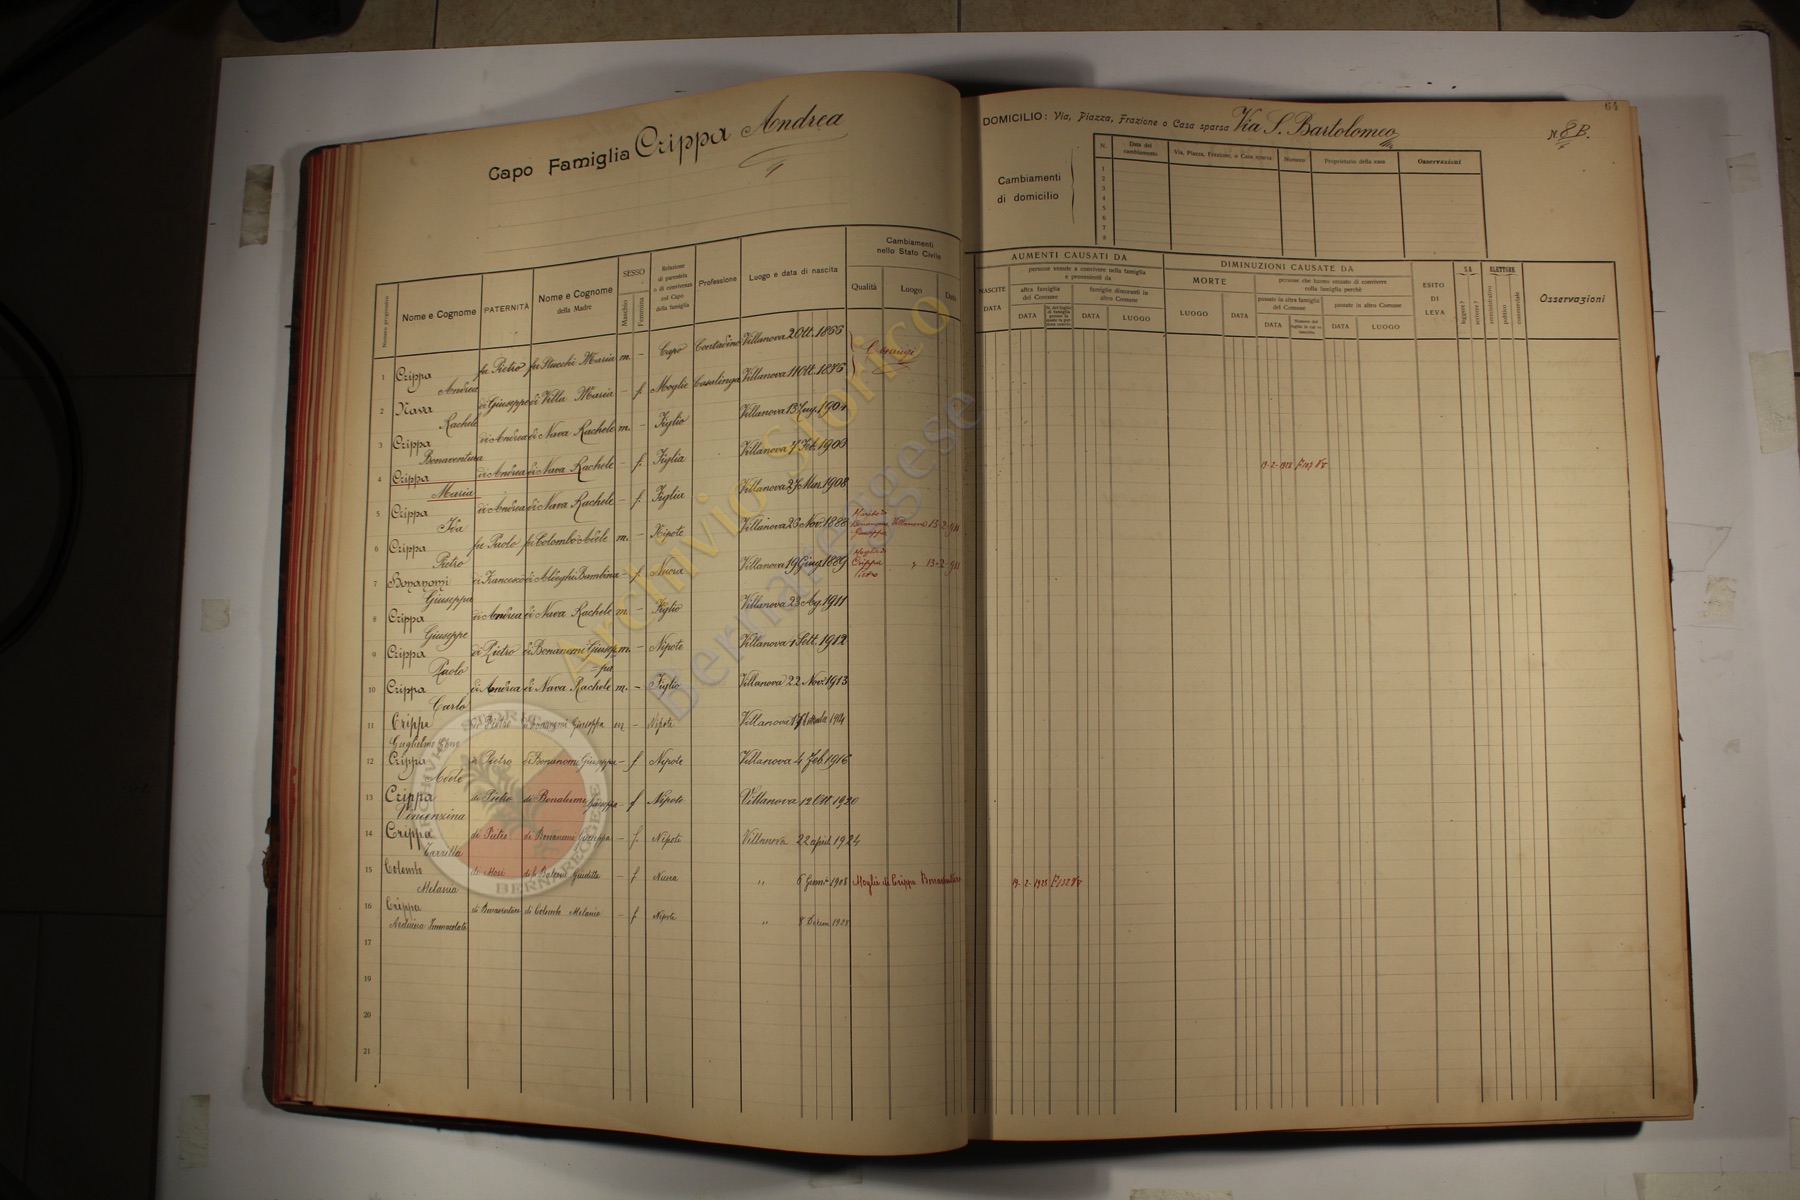 Capo Famiglia Crippa Andrea
64
DOMICILIO: Via, Piazza, Frazione o Casa sparsa Via S. Bartolomeo N. 8 B.
Cambiamenti di domicilio
N. Data del cambiamento Via, Piazza, Frazione, o Casa sparsa Numero Proprietario della casa Osservazioni
1
2
3
4
5
6
7
8
Numero progressivo Nome e Cognome PATERNITÀ Nome e Cognome della Madre SESSO Maschio Femmina Relazione di parentela o di convivenza col Capo della famiglia Professione Luogo e data di nascita Cambiamenti nello Stato Civile Qualità Luogo Data
AUMENTI CAUSATI DA
NASCITE DATA
persone venute a convivere nella famiglia e provenienti da
altra famiglia del Comune DATA
famiglie dimoranti in altro Comune DATA LUOGO
DIMINUZIONI CAUSATE DA
MORTE LUOGO DATA
persone che hanno cessato di convivere colla famiglia perchè
passate in altra famiglia del Comune DATA
passate in altro Comune DATA LUOGO
ESITO DI LEVA
SA leggere? scrivere?
ELETTORE amministrativo politico commerciale
Osservazioni
1 Crippa Andrea fu Pietro fu Stucchi Maria m. - Capo Contadino Villanova 2 Ott. 1866 Coniugi
2 Nava Rachele di Giuseppe di Villa Maria - f. Moglie Casalinga Villanova 11 Ott. 1876
3 Crippa Bonaventura di Andrea di Nava Rachele m. - Figlio Villanova 13 Lug. 1904
4 Crippa Maria di Andrea di Nava Rachele - f. Figlia Villanova 7 Feb. 1906 19-2-1928
5 Crippa Ida di Andrea di Nava Rachele - f. Figlia Villanova 27 Mar. 1908
6 Crippa Pietro fu Paolo fu Colombo Adele m. - Nipote Villanova 23 Nov. 1888 Marito di Bonanomi Giuseppa Villanova 13-2-911
7 Bonanomi Giuseppa di Francesco di Bambina - f. Nuora Villanova 19 Giug. 1889 Moglie di Crippa Pietro 13-2-911
8 Crippa Giuseppe di Andrea di Nava Rachele m. - Figlio Villanova 23 Ag. 1911
9 Crippa Paolo di Pietro di Bonanomi Giusep=pa m. - Nipote Villanova 1 Sett. 1912
10 Crippa Carlo di Andrea di Nava Rachele m. - Figlio Villanova 22 Nov. 1913
11 Crippa Guglielmo di Pietro di Bonanomi Giuseppa m - Nipote Villanova 1914
12 Crippa Adele di Pietro di Bonanomi Giuseppa - f Nipote Villanova 4 Feb 1916
13 Crippa Vincenzina di Pietro di Bonanomi Giuseppa - f Nipote Villanova 12 Ott 1920
14 Crippa di Pietro di Bonanomi Giuseppa - f. Nipote Villanova 22 april 1924
15 Colombo Melania di di Giuditta - f Nuora " 6 Genn 1908 Moglie di Crippa Bonaventura 19-2-1928
16 Crippa Arduina Immacolata di Bonaventura di Colombo Melania - f Nipote " 8 Dicem 1928
17
18
19
20
21
Archivio Storico
Bernareggese
ARCHIVIO STORICO BERNAREGGESE